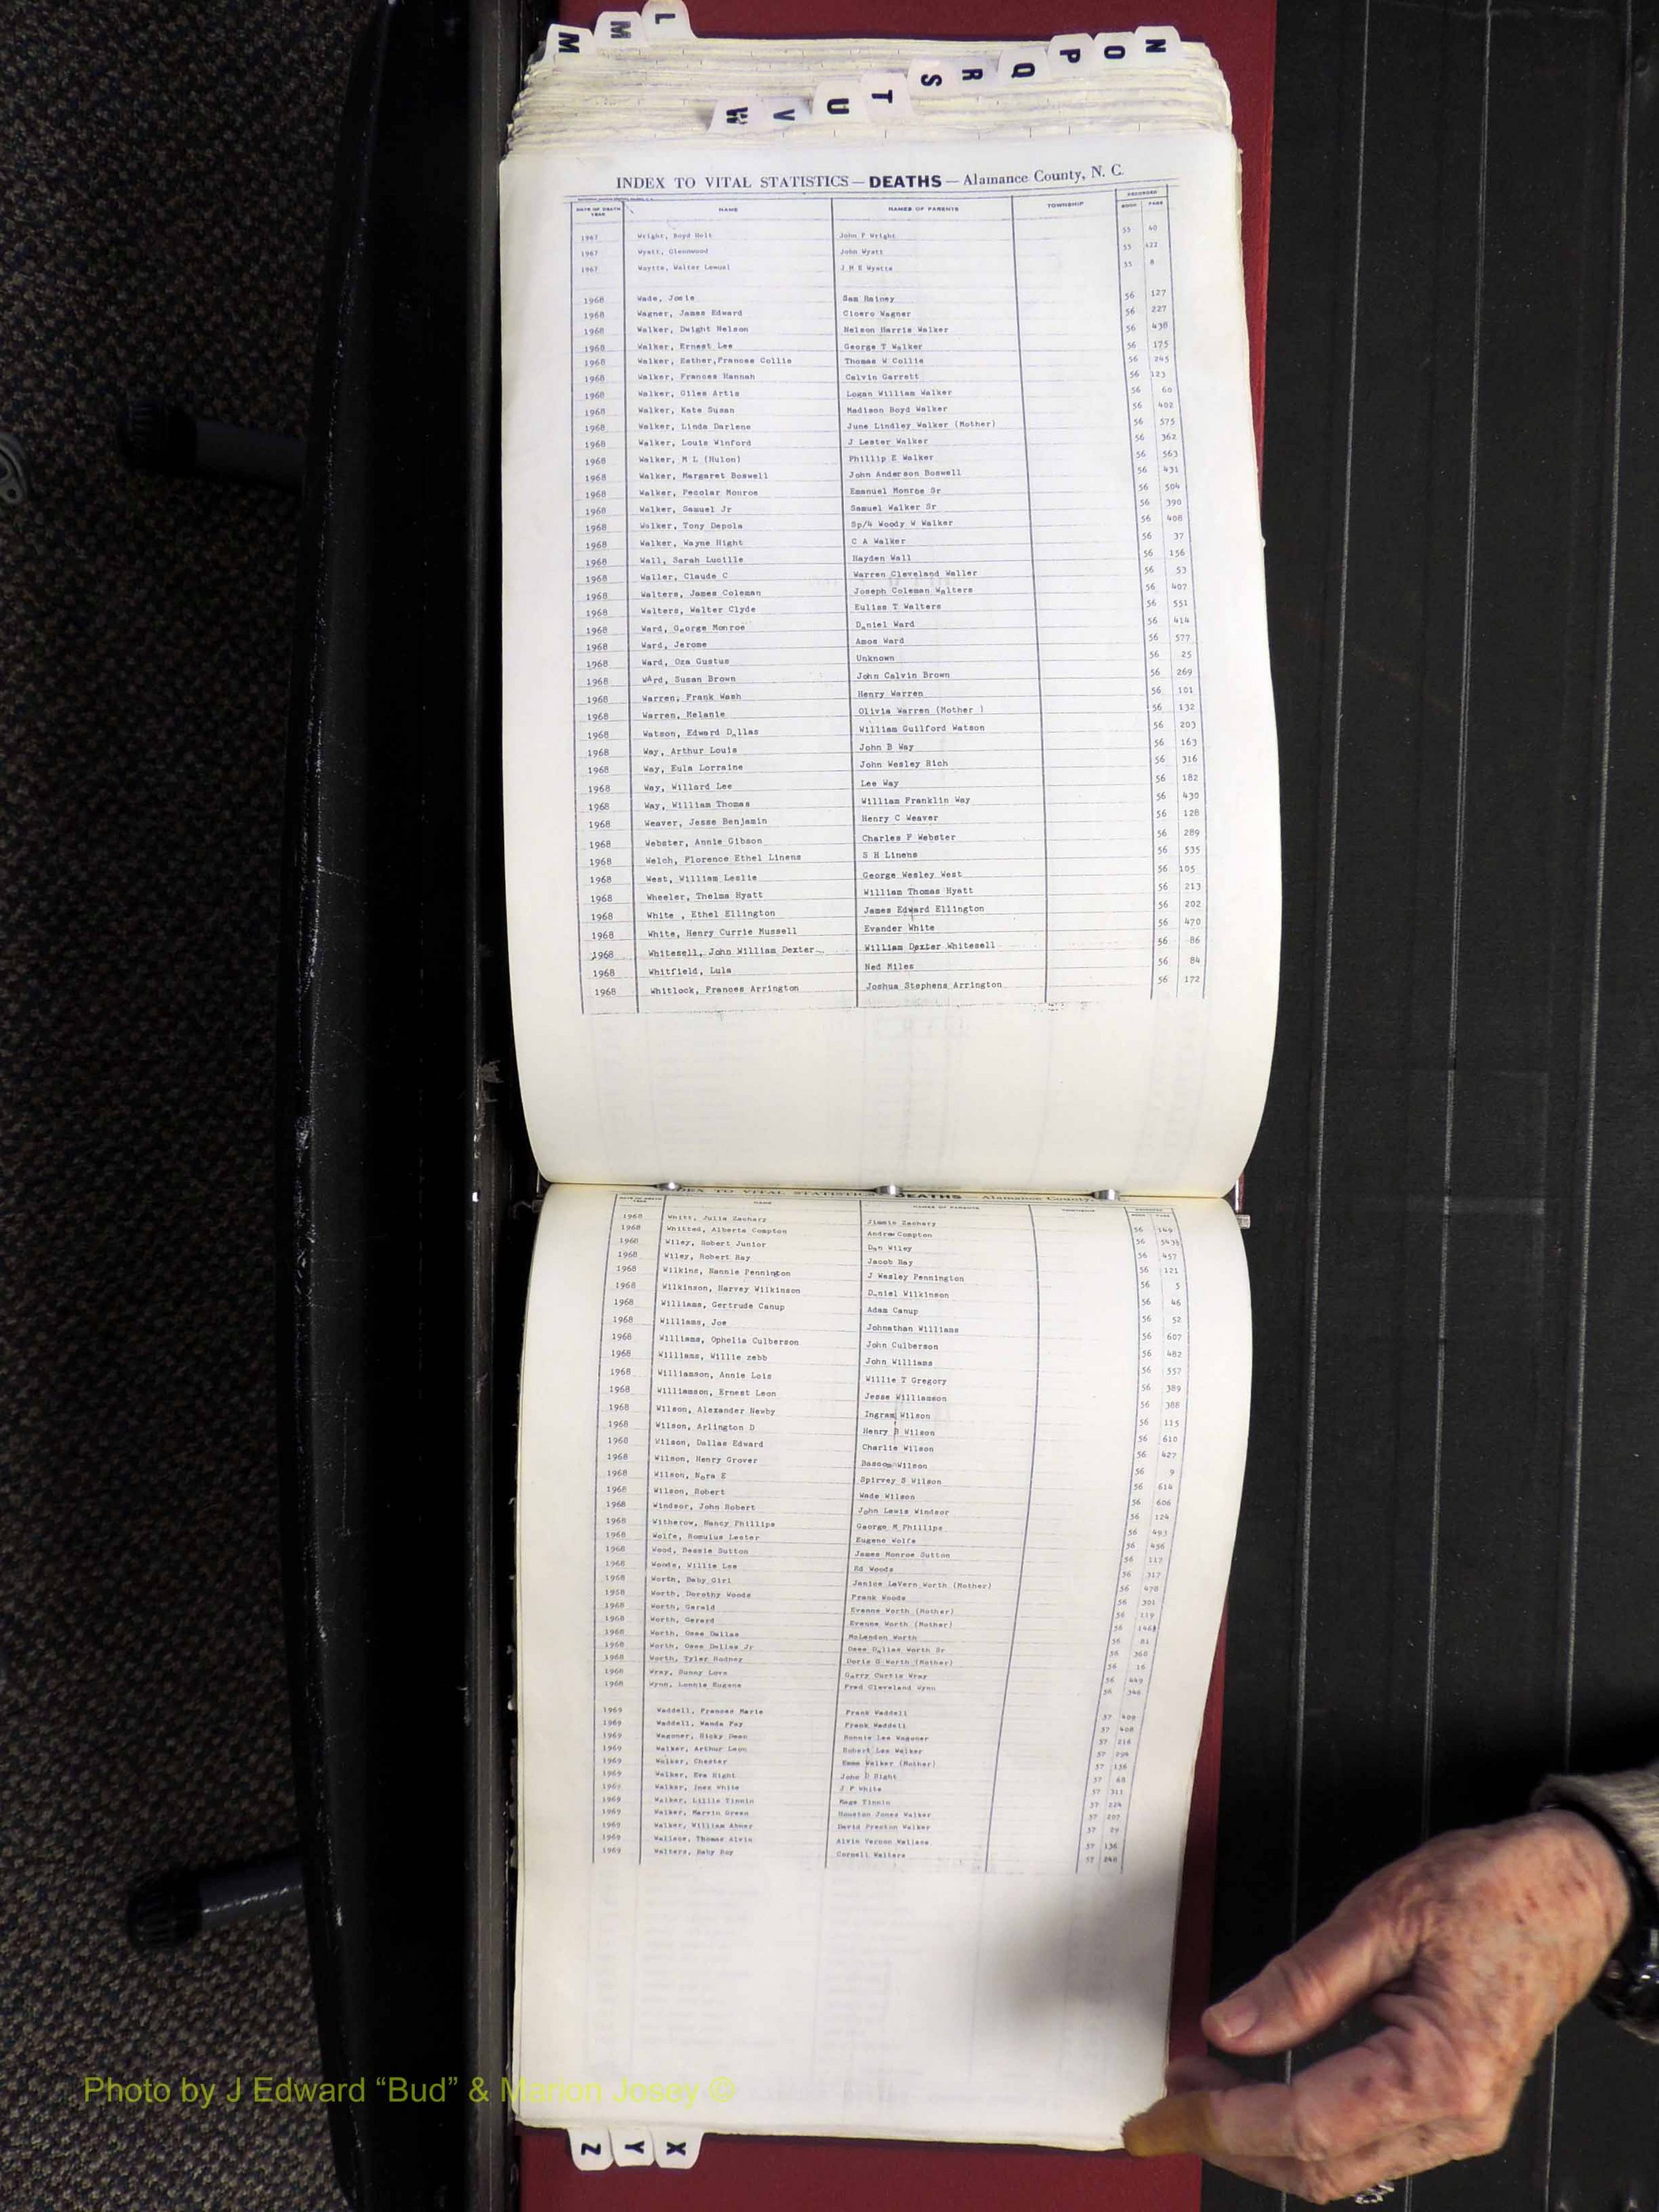 L
M
M
N
O
P
Q
R
S
T
U
V
W
INDEX TO VITAL STATISTICS — DEATHS — Alamance County, N. C.
DATE OF DEATH YEAR NAME NAMES OF PARENTS TOWNSHIP RECORDED BOOK PAGE
1967 Wright, Boyd Holt John F Wright 55 40
1967 Wyatt, Glennwood John Wyatt 55 422
1967 Waytte, Walter Lemuel J M E Wyatte 55 8
1968 Wade, Josie Sam Rainey 56 127
1968 Wagner, James Edward Cicero Wagner 56 227
1968 Walker, Dwight Nelson Nelson Harris Walker 56 438
1968 Walker, Ernest Lee George T Walker 56 175
1968 Walker, Esther,Frances Collie Thomas W Collie 56 245
1968 Walker, Frances Hannah Calvin Garrett 56 123
1968 Walker, Giles Artis Logan William Walker 56 60
1968 Walker, Kate Susan Madison Boyd Walker 56 402
1968 Walker, Linda Darlene June Lindley Walker (Mother) 56 575
1968 Walker, Louis Winford J Lester Walker 56 362
1968 Walker, M L (Hulon) Phillip E Walker 56 563
1968 Walker, Margaret Boswell John Anderson Boswell 56 431
1968 Walker, Pecolar Monroe Emanuel Monroe Sr 56 504
1968 Walker, Samuel Jr Samuel Walker Sr 56 390
1968 Walker, Tony Depola Sp/4 Woody W Walker 56 408
1968 Walker, Wayne Hight C A Walker 56 37
1968 Wall, Sarah Lucille Hayden Wall 56 156
1968 Waller, Claude C Warren Cleveland Waller 56 53
1968 Walters, James Coleman Joseph Coleman Walters 56 407
1968 Walters, Walter Clyde Euliss T Walters 56 551
1968 Ward, George Monroe Daniel Ward 56 414
1968 Ward, Jerome Amos Ward 56 577
1968 Ward, Oza Gustus Unknown 56 25
1968 WArd, Susan Brown John Calvin Brown 56 269
1968 Warren, Frank Wash Henry Warren 56 101
1968 Warren, Melanie Olivia Warren (Mother ) 56 132
1968 Watson, Edward Dallas William Guilford Watson 56 203
1968 Way, Arthur Louis John B Way 56 163
1968 Way, Eula Lorraine John Wesley Rich 56 316
1968 Way, Willard Lee Lee Way 56 182
1968 Way, William Thomas William Franklin Way 56 430
1968 Weaver, Jesse Benjamin Henry C Weaver 56 128
1968 Webster, Annie Gibson Charles F Webster 56 289
1968 Welch, Florence Ethel Linens S H Linens 56 535
1968 West, William Leslie George Wesley West 56 105
1968 Wheeler, Thelma Hyatt William Thomas Hyatt 56 213
1968 White , Ethel Ellington James Edward Ellington 56 202
1968 White, Henry Currie Mussell Evander White 56 470
1968 Whitesell, John William Dexter William Dexter Whitesell 56 86
1968 Whitfield, Lula Ned Miles 56 84
1968 Whitlock, Frances Arrington Joshua Stephens Arrington 56 172
INDEX TO VITAL STATISTICS — DEATHS — Alamance County,
DATE OF DEATH YEAR NAME NAMES OF PARENTS TOWNSHIP RECORDED BOOK PAGE
1968 Whitt, Julia Zachary Jimmie Zachary 56 149
1968 Whitted, Alberta Compton Andrew Compton 56
1968 Wiley, Robert Junior Dan Wiley 56 457
1968 Wiley, Robert Ray Jacob Ray 56 121
1968 Wilkins, Nannie Pennington J Wesley Pennington 56 5
1968 Wilkinson, Harvey Wilkinson Daniel Wilkinson 56 46
1968 Williams, Gertrude Canup Adam Canup 56 52
1968 Williams, Joe Johnathan Williams 56 607
1968 Williams, Ophelia Culberson John Culberson 56 482
1968 Williams, Willie zebb John Williams 56 557
1968 Williamson, Annie Lois Willie T Gregory 56 389
1968 Williamson, Ernest Leon Jesse Williamson 56 388
1968 Wilson, Alexander Newby Ingram Wilson 56 115
1968 Wilson, Arlington D Henry B Wilson 56 610
1968 Wilson, Dallas Edward Charlie Wilson 56 427
1968 Wilson, Henry Grover Bascom Wilson 56 9
1968 Wilson, Nora E Spirvey S Wilson 56 614
1968 Wilson, Robert Wade Wilson 56 606
1968 Windsor, John Robert John Lewis Windsor 56 124
1968 Witherow, Nancy Phillips George M Phillips 56 493
1968 Wolfe, Romulus Lester Eugene Wolfe 56 456
1968 Wood, Bessie Sutton James Monroe Sutton 56 117
1968 Woods, Willie Lee Ed Woods 56 317
1968 Worth, Baby Girl Janice LaVern Worth (Mother) 56 478
1958 Worth, Dorothy Woods Frank Woods 56 301
1968 Worth, Gerald Evonne Worth (Mother) 56 119
1968 Worth, Gerard Evonne Worth (Mother) 56
1968 Worth, Osee Dallas McLendon Worth 56 81
1968 Worth, Osee Dallas Jr Osee Dallas Worth Sr 56 368
1968 Worth, Tyler Rodney Doris G Worth (Mother) 56 16
1968 Wray, Sunny Love Garry Curtis Wray 56 449
1968 Wynn, Lonnie Eugene Fred Cleveland Wynn 56 346
1969 Waddell, Frances Marie Frank Waddell 57 409
1969 Waddell, Wanda Fay Frank Waddell 57 408
1969 Wagoner, Ricky Dean Ronnie Lee Wagoner 57 216
1969 Walker, Arthur Leon Robert Lee Walker 57 294
1969 Walker, Chester Emma Walker (Mother) 57 156
1969 Walker, Eva Hight John D Hight 57 68
1969 Walker, Inez White J F White 57 311
1969 Walker, Lillie Tinnin Mage Tinnin 57 224
1969 Walker, Marvin Green Houston Jones Walker 57 207
1969 Walker, William Abner David Preston Walker 57 29
1969 Wallace, Thomas Alvin Alvin Vernon Wallace 57 136
1969 Walters, Baby Boy Cornell Walters 57 248
Photo by J Edward “Bud” & Marion Josey ©
Z
Y
X